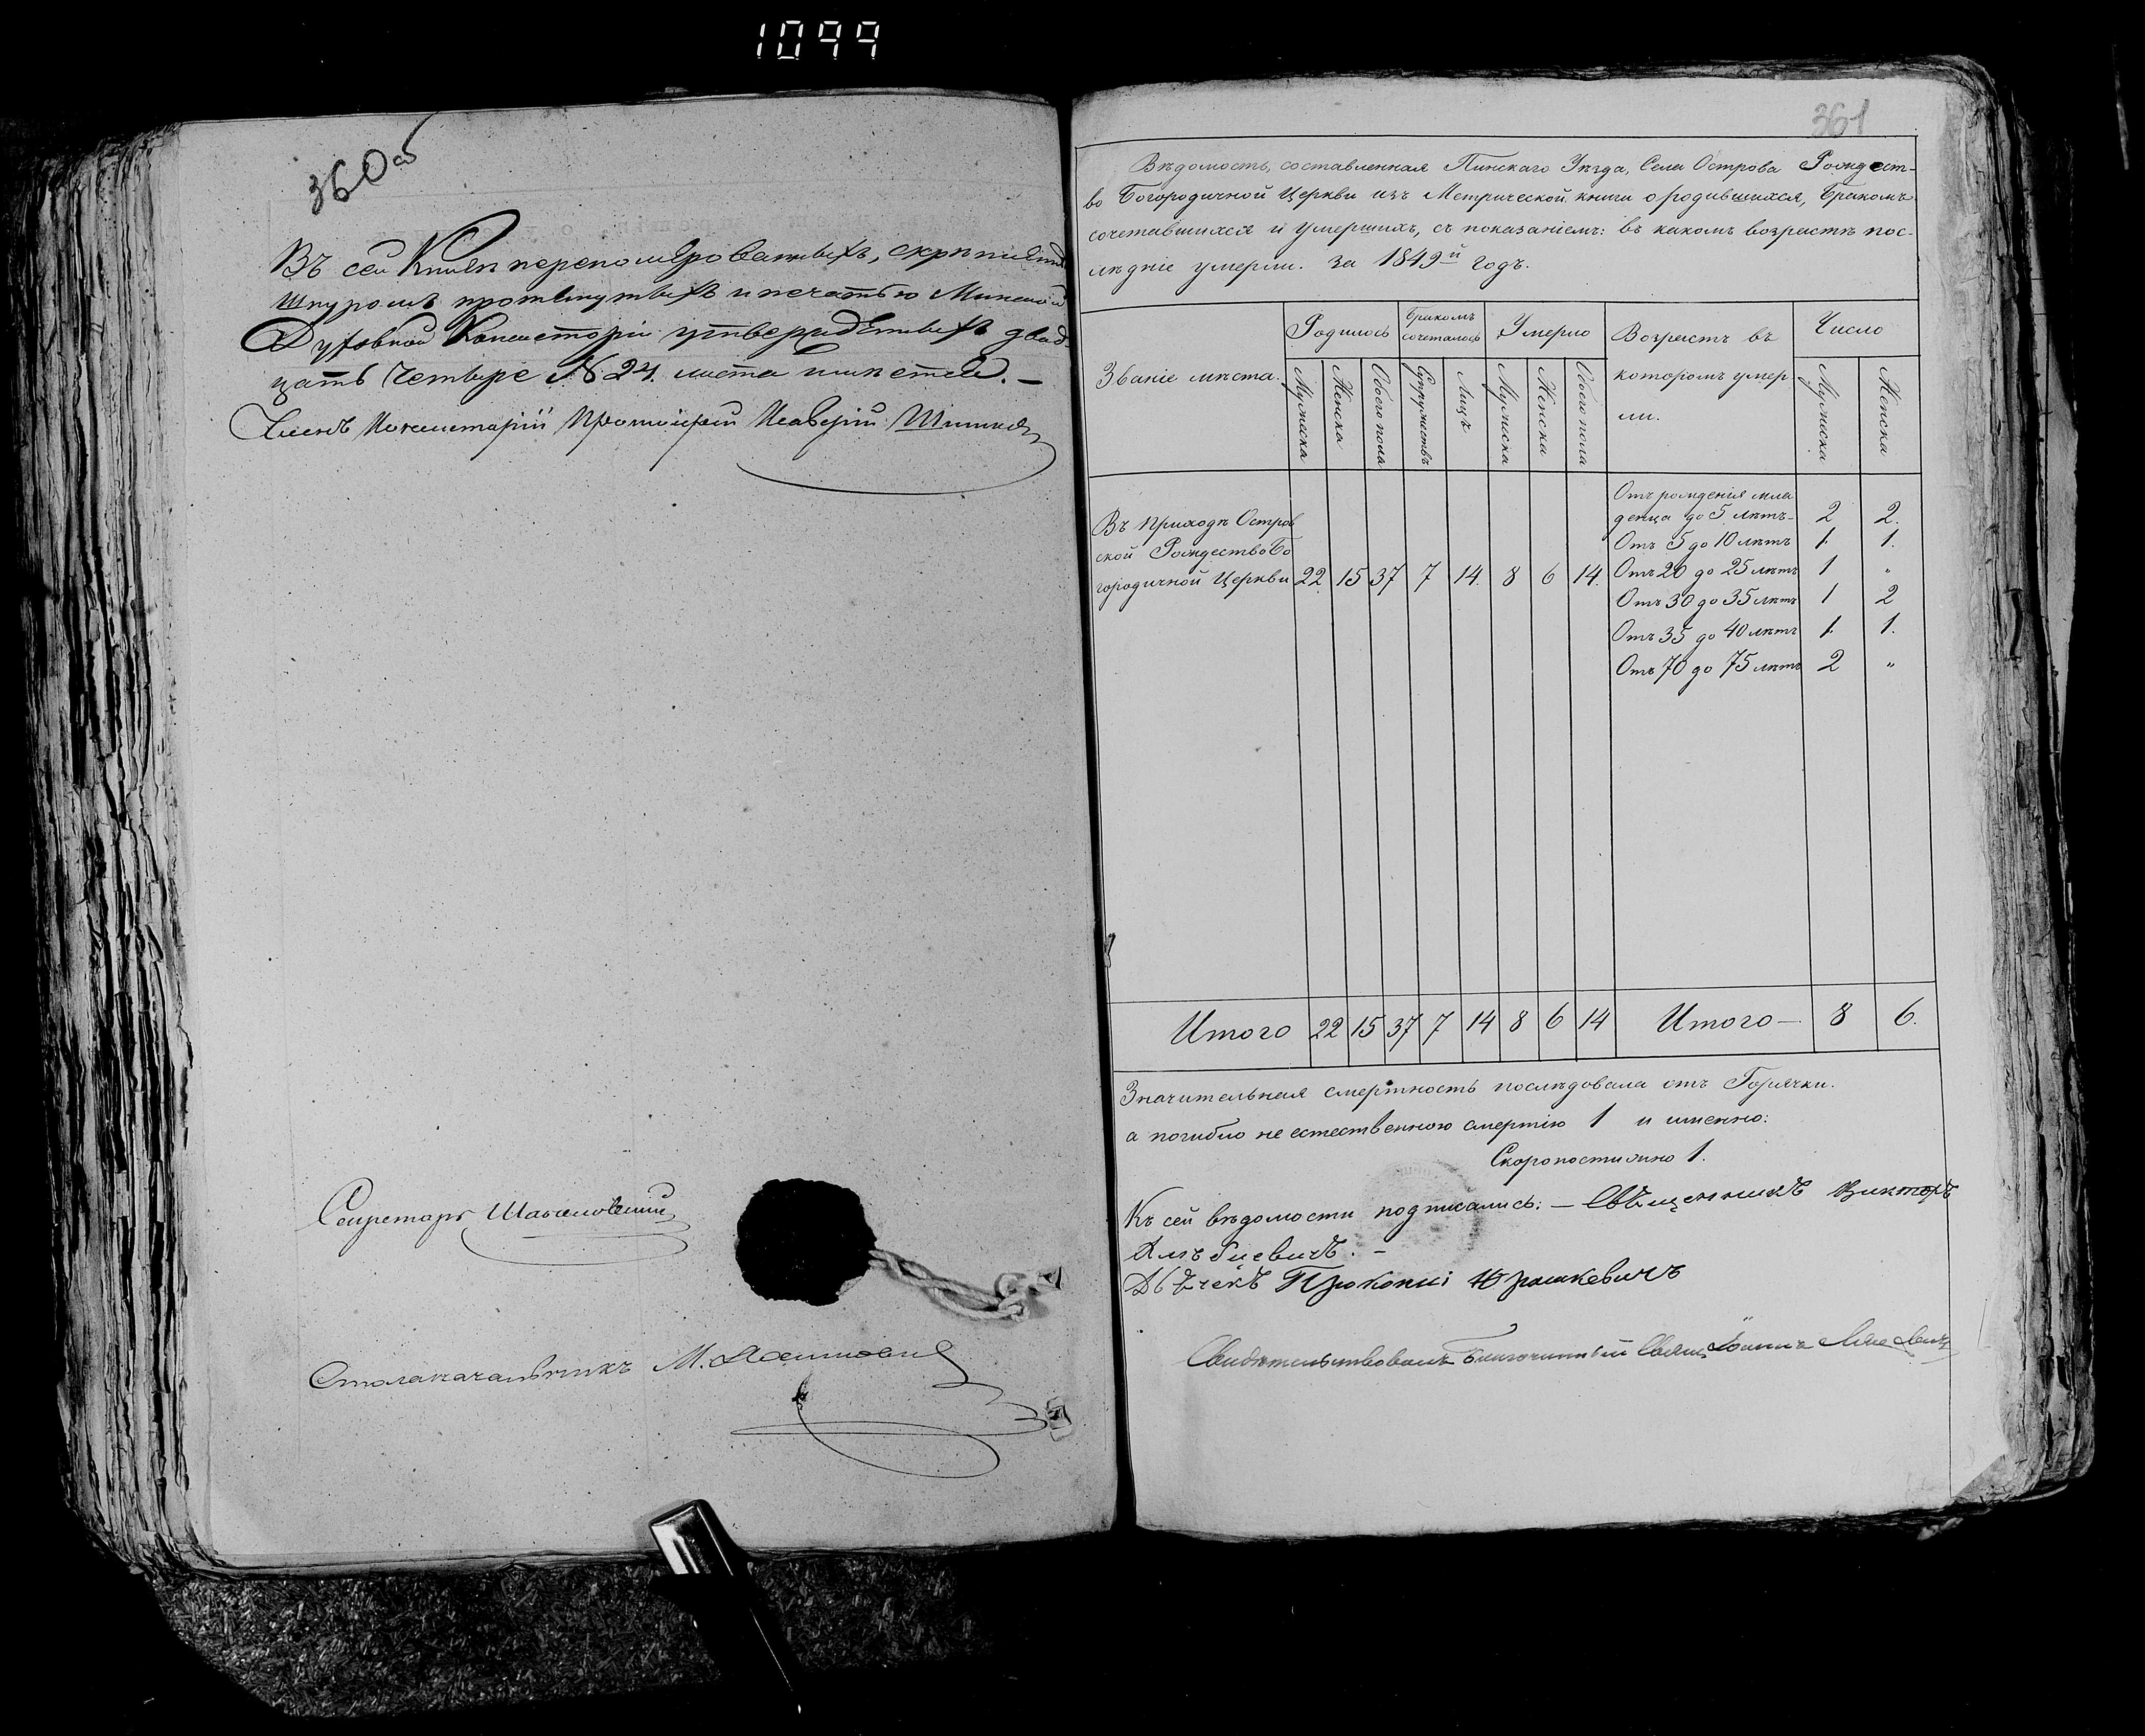 1099
360 об
Въ сей Книгѣ перепомѣрованныхъ, скрѣпленныхъ
шнуромъ протянутыхъ и печатью Минской
Духовной Консисторіи утвержденныхъ двад-
цать четыре № 24. листа имѣется. —
Членъ Консисторіи Протоіерей
Секретарь
Столоначальникъ М.
361
Вѣдомость, составленная Пинскаго Уѣзда, Села Острова Рождест-
во Богородичной Церкви изъ Метрической книги о родившихся, бракомъ
сочетавшихся и умершихъ, съ показаніемъ: въ какомъ возрастѣ пос-
лѣдніе умерли. за 1849й годъ.
Званіе мѣста. Родилось Бракомъ сочеталось Умерло Возрастъ въ которомъ умер ли. Число
Мужеска Женска Обоего пола Супружествъ Лицъ Мужеска Женска Обоего пола Мужеска Женска
Отъ рожденія мла
денца до 5 лѣтъ- 2 2.
Въ приходѣ Остров
Отъ 5 до 10 лѣтъ 1. 1.
ской Рождество Бо
городичной Церкви 22. 15 37 7 14. 8 6 14. Отъ 20 до 25 лѣтъ 1 "
Отъ 30 до 35 лѣтъ 1 2
Отъ 35 до 40 лѣтъ 1. 1.
Отъ 70 до 75 лѣтъ 2 "
Итого 22 15 37 7 14 8 6 14 Итого — 8 6.
Значительная смертность послѣдовала отъ Горячки.
а погибло не естественною смертію 1 и именно:
Скоропостижно 1.
Къ сей вѣдомости подписались: — Священникъ Викторъ
Дьячекъ Прокопій Юрашкевичъ
Свидѣтельствовалъ Благочинный Свящ Іоаннъ